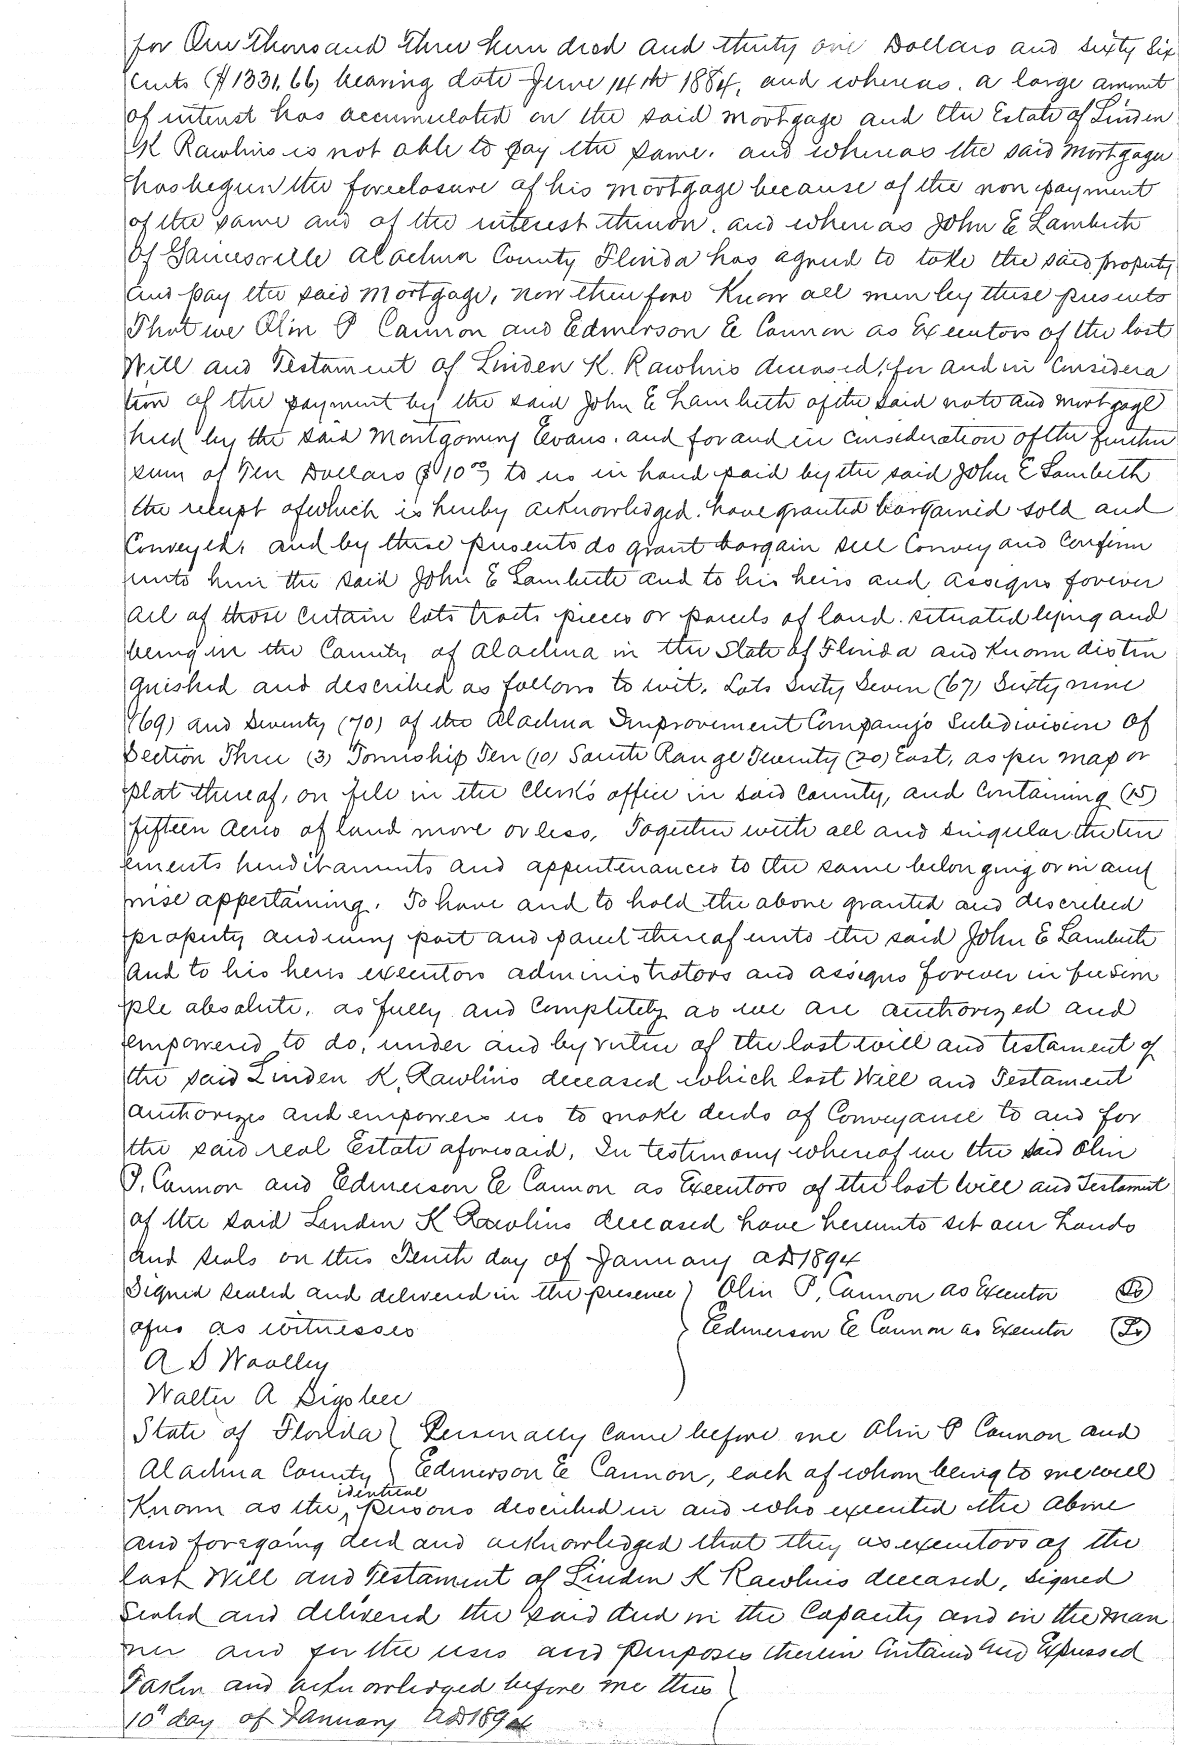 for One Thousand Three hundred and thirty one Dollars and Sixty Six
Cents ($1331,66) bearing date June 14th 1884, and whereas, a large amount
of interest has accumulated on the said mortgage and the Estate of Linden
K Rawlins is not able to pay the same. and whereas the said Mortgagee
has begun the foreclosure of his mortgage because of the non payment
of the same and of the interest thereon. and whereas John E Lambeth
of Gainesville Alachua County Florida has agreed to take the said property
and pay the said Mortgage, now therefore Know all men by these presents
That we Olin P Cannon and Edmerson E Cannon as Executors of the last
Will and Testament of Linden K. Rawlins deceased, for and in Considera
tion of the payment by the said John E Lambeth of the said note and mortgage
held by the said Montgomery Evans. and for and in consideration of the further
sum of Ten Dollars $10.00 to us in hand paid by the said John E Lambeth
the receipt of which is hereby acknowledged. have granted bargained sold and
Conveyed, and by these presents do grant bargain sell Convey and Confirm
unto him the said John E Lambeth and to his heirs and assigns forever
all of those certain lots tracts pieces or parcels of land. situated lying and
being in the County of Alachua in the State of Florida and Known distin
guished and described as follows to wit. Lots Sixty Seven (67) Sixty nine
(69) and Seventy (70) of the Alachua Improvement Company's Subdivision of
Section Three (3) Township Ten (10) South Range Twenty (20) East, as per map or
plat thereof, on file in the Clerk's office in said County, and Containing (15)
fifteen acres of land more or less, Together with all and singular the ten
ements hereditaments and appurtenances to the same belonging or in any
wise appertaining. To have and to hold the above granted and described
property and every part and parcel thereof unto the said John E Lambeth
and to his heirs executors administrators and assigns forever in fee sim
ple absolute, as fully and completely as we are authorized and
empowered to do, under and by virtue of the last will and testament of
the said Linden K, Rawlins deceased which last Will and Testament
authorizes and empowers us to make deeds of Conveyance to and for
the said real Estate aforesaid. In testimony whereof we the said Olin
P. Cannon and Edmerson E Cannon as Executors of the last Will and Testament
of the said Linden K Rawlins deceased have hereunto set our hands
and seals on this Tenth day of January AD 1894
Signed sealed and delivered in the presence ) Olin P. Cannon as Executor
of us as witnesses Eedmerson E Cannon as Executor
A S Woolley
Walter A Bigsbee
State of Florida } Personally came before me Olin P Cannon and
Alachua County } Edmerson E Cannon, each of whom being to me well
identical
Known as the persons described in and who executed the above
and foregoing deed and acknowledged that they as executors of the
last Will and Testament of Linden K Rawlins deceased, signed
Sealed and delivered the said deed in the Capacity and in the man
ner and for the uses and purposes therein Contained and Expressed
Taken and acknowledged before me this
10" day of January AD 1894